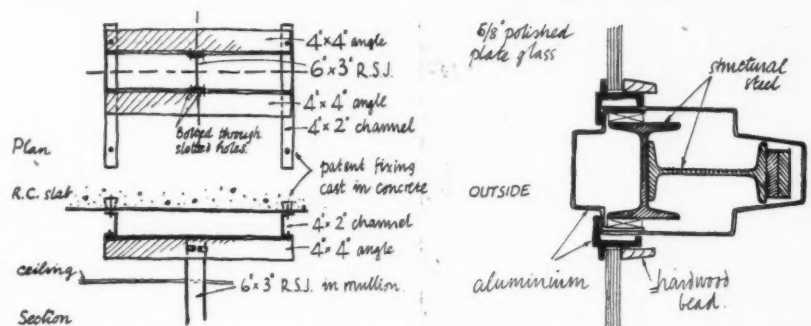 4"×4" angle
6"×3" R.S.J.
4"×4" angle
4"×2" channel
Bolted through
slotted holes.
Plan
patent fixing
cast in concrete
R.C. slab
4"×2" channel
4"×4" angle
ceiling
6"×3" R.S.J. in mullion.
Section
5/8" polished
plate glass
structural
steel
OUTSIDE
aluminium
hardwood
bead.